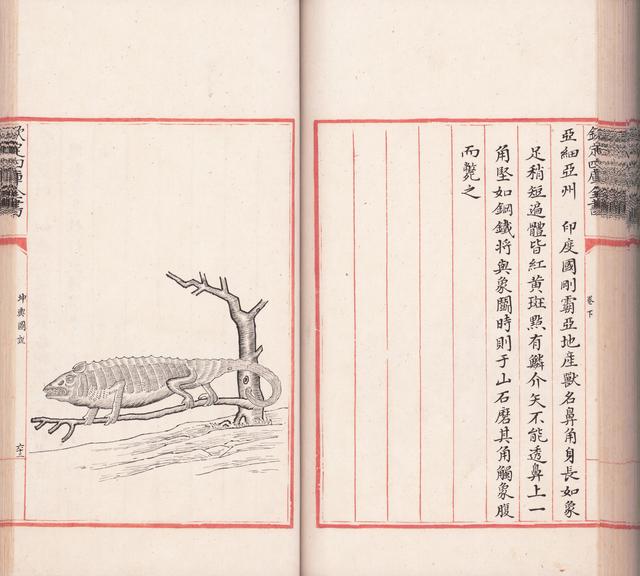 欽定四庫全書
卷下
亞細亞州　印度國剛霸亞地產獸名鼻角身長如象
足稍短遍體皆紅黃斑點有鱗介矢不能透鼻上一
角堅如鋼鐵將與象鬬時則于山石磨其角觸象腹
而斃之
欽定四庫全書
坤輿圖說